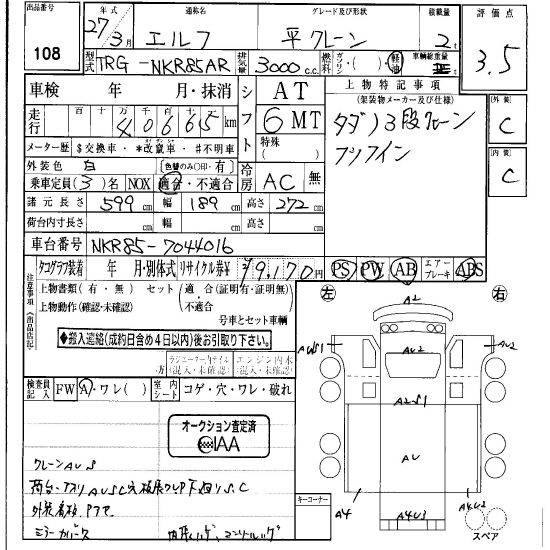 出品番号
108
年式 通称名 グレード及び形状 積載量 評価点
27年 3月 エルフ 平クレーン 2t 3.5
型式 TRG-NKR85AR 排気量 3000c.c. 燃料 ガソリン・( )・軽油 車輌総重量 t
車検 年 月・抹消 シフト AT 上物特記事項
(架装物メーカー及び仕様) 外装 C
走行 百 十 万 千 百 十 km 6 MT タダノ3段クレーン
特殊( )
メーター歴 $交換車・*改竄車・#不明車
外装色 白 (色替のみ〇印・有) 冷房 AC 無 内装 C
乗車定員(3)名 NOX 適合・不適合
諸元長さ 599cm 幅 189cm 高さ 272cm
荷台内寸長さ cm 幅 cm 高さ cm
車台番号 NKR85-7044016
タコグラフ装着 年 月・別体式 リサイクル券¥ 9,170円 PS PW AB エアーブレーキ ABS
注意事項(出品店記)
上物書類(有・無) セット(適合(証明有・証明無)・不適合)
上物動作(確認・未確認)
号車とセット車輌
左 右
◆搬入連絡(成約日含め4日以内)後お引取り下さい。
万 ラジエーター内オイル(混入・未確認) エンジン内水(混入・未確認)
検査員記入 FW A・ワレ( ) 室内シート コゲ・穴・ワレ・破れ
オークション査定済
IAA
A2
AWS1 AU2 AU2
A2S1
AU
A4 A4U3 A4U2
クレーンAUS
キーコーナー
スペア